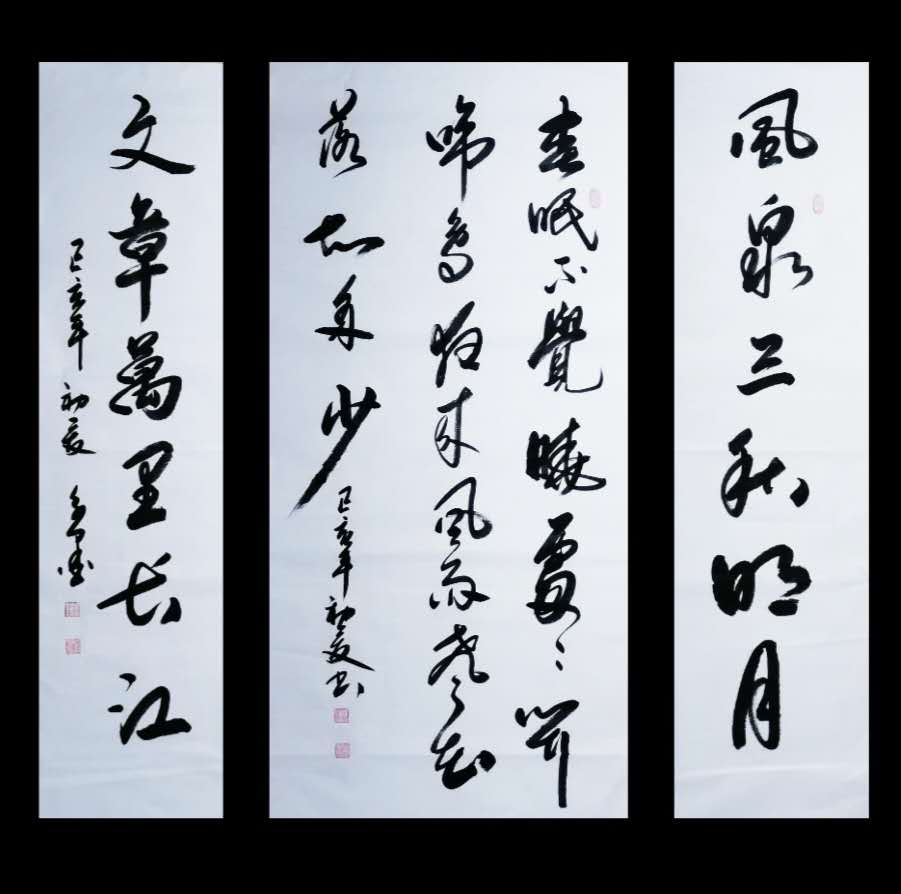 風泉三秋明月
春眠不覺曉處々聞
啼鳥夜來風雨聲花
落知多少
己亥年初夏書
文章萬里長江
己亥年初夏